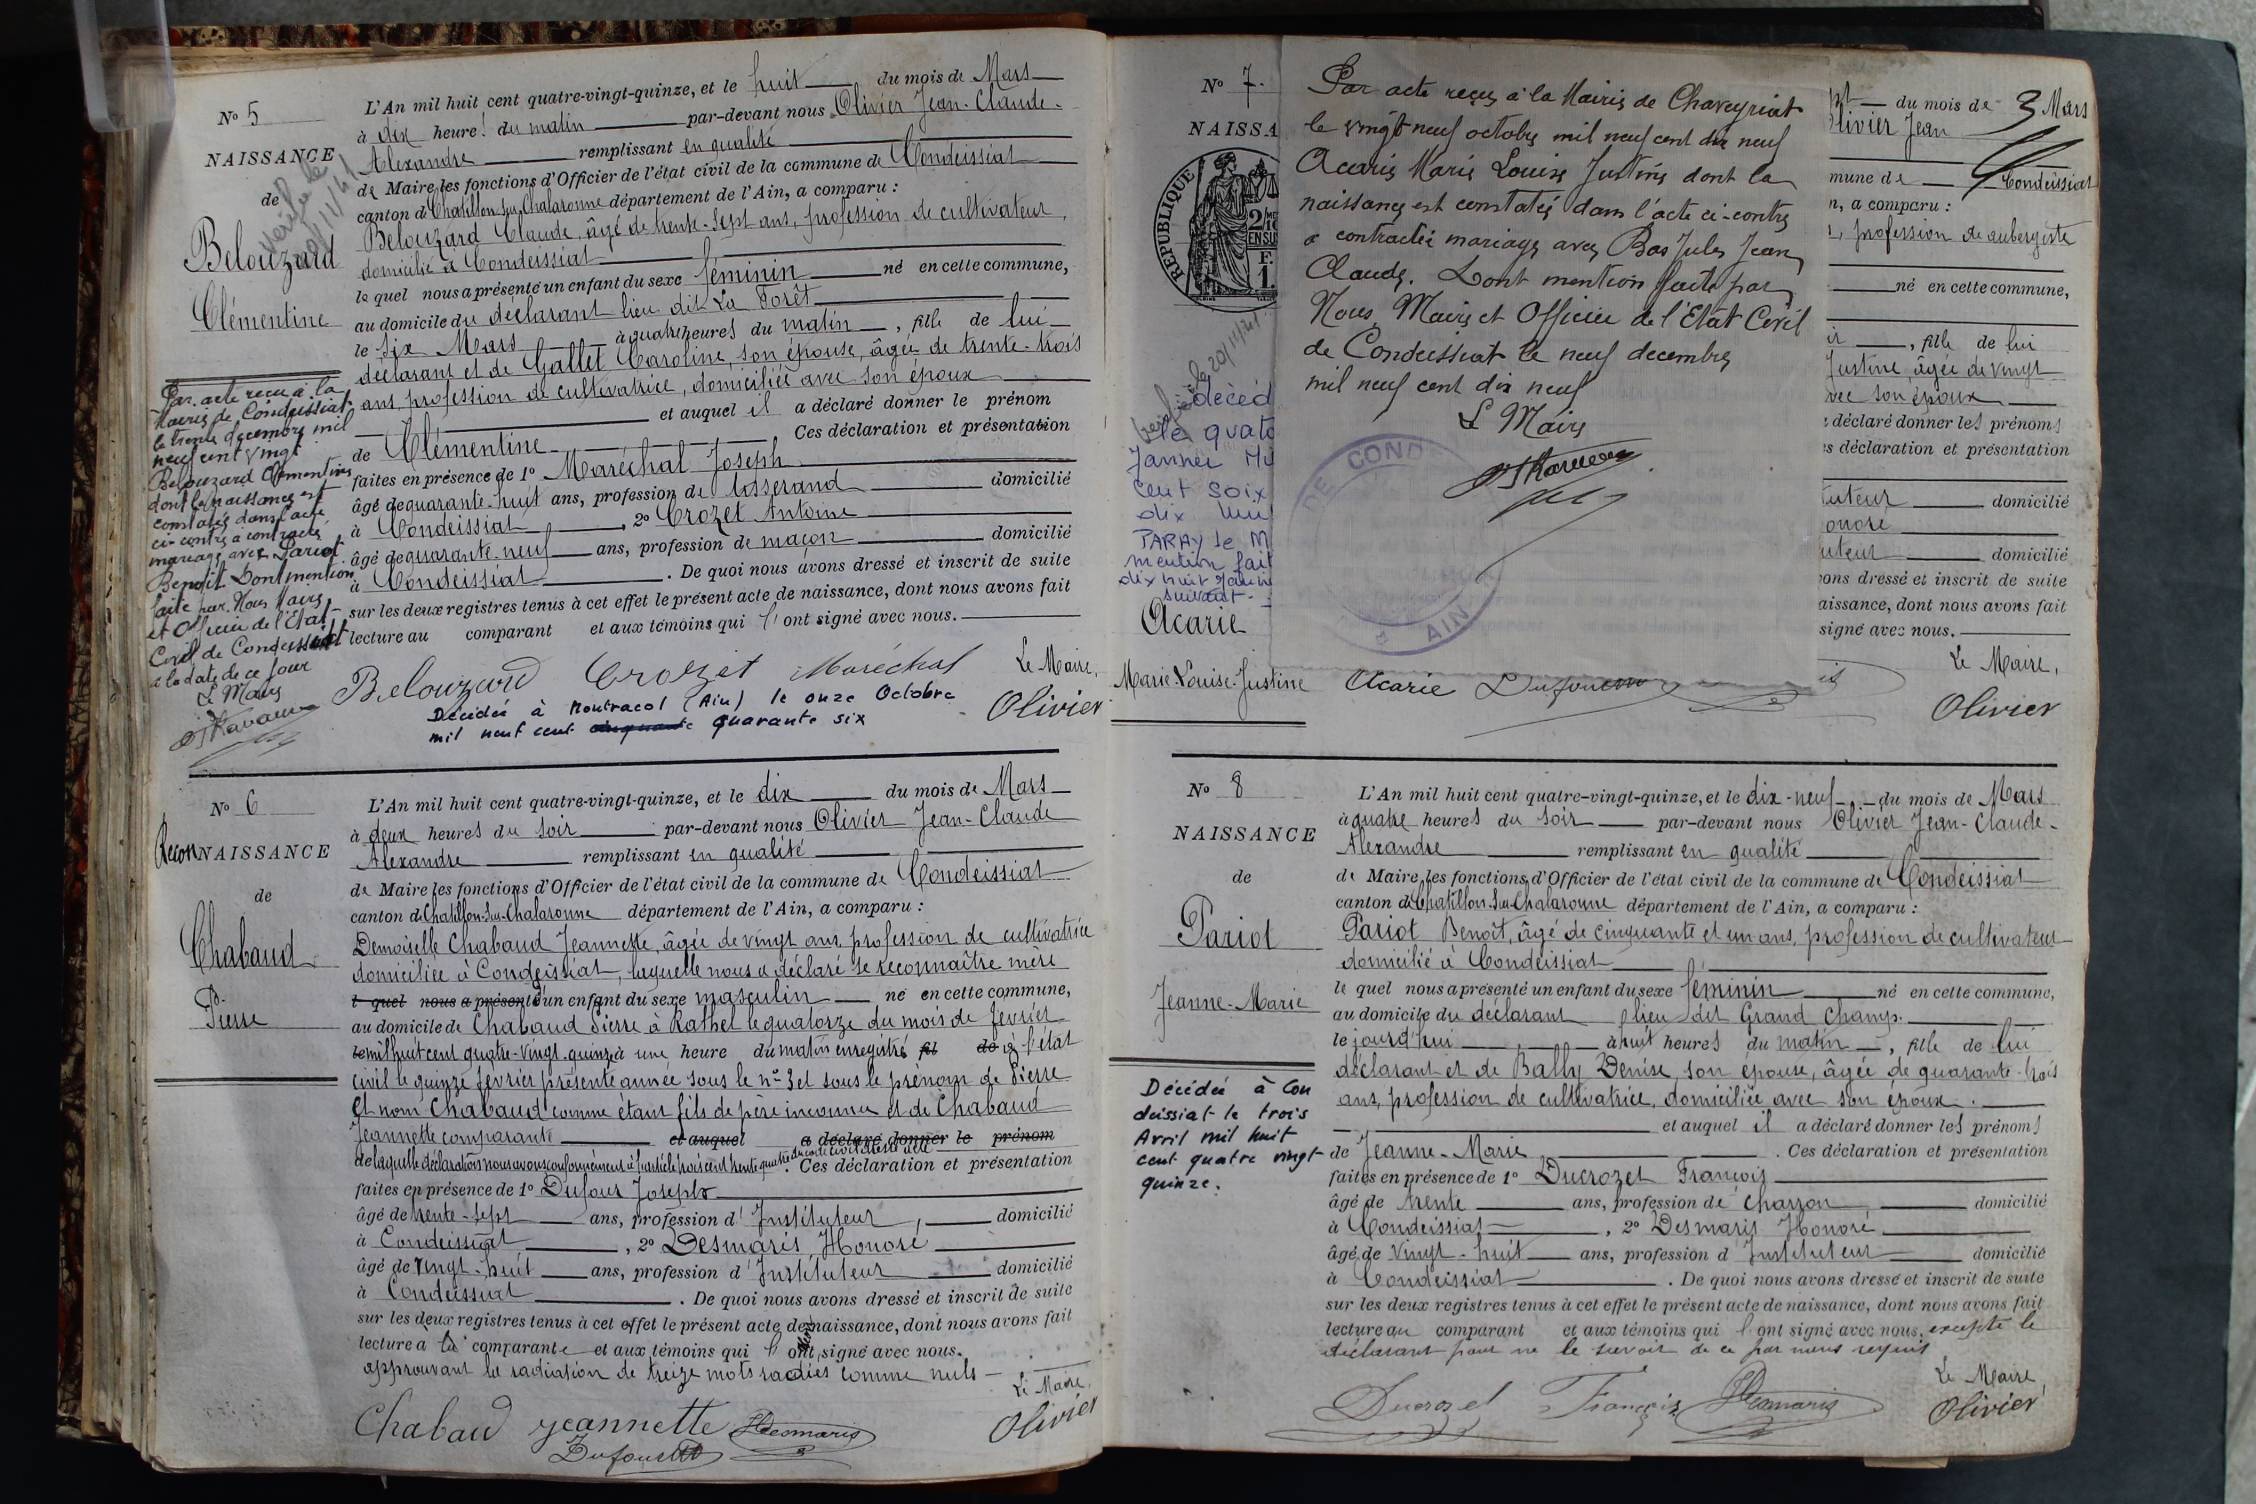 N° 5
NAISSANCE
de
Belouzard
Clémentine
vérifié le 20/11/41
L'An mil huit cent quatre-vingt-quinze, et le huit du mois de Mars
à dix heures du matin par-devant nous Olivier Jean-Claude-
Alexandre remplissant en qualité
de Maire les fonctions d'Officier de l'état civil de la commune de Condeissiat
canton de Chatillon-sur-Chalaronne département de l'Ain, a comparu :
Belouzard Claude, âgé de trente-sept ans, profession de cultivateur,
domicilié à Condeissiat
le quel nous a présenté un enfant du sexe féminin né en cette commune,
au domicile du déclarant lieu dit La Forêt
le six Mars à quatre heures du matin, fille de lui
déclarant et de Gallet Caroline, son épouse, âgée de trente-trois
ans, profession de cultivatrice, domiciliée avec son époux
et auquel il a déclaré donner le prénom
de Clémentine Ces déclaration et présentation
faites en présence de 1° Maréchal Joseph
âgé de quarante-huit ans, profession de tisserand domicilié
à Condeissiat, 2° Crozet Antoine
âgé de quarante-neuf ans, profession de maçon domicilié
à Condeissiat. De quoi nous avons dressé et inscrit de suite
sur les deux registres tenus à cet effet le présent acte de naissance, dont nous avons fait
lecture au comparant et aux témoins qui l'ont signé avec nous.
Le Maire,
Belouzard Crozet Maréchal Olivier
Décédée à Montracol (Ain) le onze Octobre
mil neuf cent cinquante quarante six
Par acte reçu à la
Mairie de Condeissiat
le trente decembre mil
neuf cent vingt
Belouzard Clémentine
dont la naissance est
constatée dans l'acte
ci-contre a contracté
mariage avec Pariot
Benoit Dont mention
faite par Nous Maire
et Officier de l'Etat
Civil de Condeissiat
a la date de ce jour
Le Maire
N° 6
Recon NAISSANCE
de
Chabaud
Pierre
L'An mil huit cent quatre-vingt-quinze, et le dix du mois de Mars
à deux heures du soir par-devant nous Olivier Jean-Claude
Alexandre remplissant en qualité
de Maire les fonctions d'Officier de l'état civil de la commune de Condeissiat
canton de Chatillon-sur-Chalaronne département de l'Ain, a comparu :
Demoiselle Chabaud Jeannette, âgée de vingt ans, profession de cultivatrice
domiciliée à Condeissiat, laquelle nous a déclaré se reconnaître mère
l quel nous a présenté d'un enfant du sexe masculin né en cette commune,
au domicile de Chabaud Pierre à Rathel le quatorze du mois de février
le mil huit cent quatre-vingt-quinze à une heure du matin enregistré fil de à l'état
civil le quinze février présente année sous le n° 3 et sous le prénom de Pierre
et nom Chabaud comme étant fils de père inconnu et de Chabaud
Jeannette comparante et auquel a déclaré donner le prénom
de laquelle déclaration nous avons conformément à l'article trois cent trente quatre du code civil dressé acte. Ces déclaration et présentation
faites en présence de 1° Dufour Joseph
âgé de trente-sept ans, profession d'Instituteur, domicilié
à Condeissiat, 2° Desmaris Honoré
âgé de vingt-huit ans, profession d'Instituteur domicilié
à Condeissiat. De quoi nous avons dressé et inscrit de suite
sur les deux registres tenus à cet effet le présent acte de naissance, dont nous avons fait
lecture à la comparante et aux témoins qui l'ont signé avec nous.
approuvant la radiation de treize mots radiés comme nuls
Le Maire,
Chabaud Jeannette Desmaris Olivier
Dufour
N° 7
NAISSA
RÉPUBLIQUE
vérifié le 20/11/41
décéd
le quato
Janvier Mil
cent soix
dix huit
PARAY le M
mention fait
dix huit Janvi
suivant
Acarie
Marie-Louise-Justine
Par acte reçu à la Mairie de Chaveyriat
le vingt neuf octobre mil neuf cent dix neuf
Acarie Marie Louise Justine dont la
naissance est constatée dans l'acte ci-contre
a contracté mariage avec Bas Jules Jean
Claude. Dont mention faite par
Nous Maire et Officier de l'Etat Civil
de Condeissiat le neuf decembre
mil neuf cent dix neuf
Le Maire
DE COND
AIN
du mois de Mars
3
Olivier Jean
mune de Condeissiat
n, a comparu :
profession de aubergiste
né en cette commune,
, fille de lui
Justine, âgée de vingt
avec son époux
déclaré donner les prénoms
s déclaration et présentation
tuteur domicilié
onoré
uteur domicilié
ons dressé et inscrit de suite
aissance, dont nous avons fait
signé avec nous.
Le Maire,
Acarie Dufour Olivier
N° 8
NAISSANCE
de
Pariot
Jeanne-Marie
Décédée à Con
deissiat le trois
Avril mil huit
cent quatre vingt
quinze.
L'An mil huit cent quatre-vingt-quinze, et le dix-neuf du mois de Mars
à quatre heures du soir par-devant nous Olivier Jean-Claude-
Alexandre remplissant en qualité
de Maire les fonctions d'Officier de l'état civil de la commune de Condeissiat
canton de Chatillon-sur-Chalaronne département de l'Ain, a comparu :
Pariot Benoît, âgé de cinquante et un ans, profession de cultivateur
domicilié à Condeissiat
le quel nous a présenté un enfant du sexe féminin né en cette commune,
au domicile du déclarant lieu dit Grand Champ.
le jourd'hui à huit heures du matin, fille de lui
déclarant et de Bally Denise, son épouse, âgée de quarante-trois
ans, profession de cultivatrice, domiciliée avec son époux.
et auquel il a déclaré donner les prénoms
de Jeanne-Marie. Ces déclaration et présentation
faites en présence de 1° Ducrozet François
âgé de trente ans, profession de charron, domicilié
à Condeissiat, 2° Desmaris Honoré
âgé de vingt-huit ans, profession d'Instituteur domicilié
à Condeissiat. De quoi nous avons dressé et inscrit de suite
sur les deux registres tenus à cet effet le présent acte de naissance, dont nous avons fait
lecture au comparant et aux témoins qui l'ont signé avec nous, excepté le
déclarant pour ne le savoir de ce par nous requis
Le Maire,
Ducrozet François Desmaris Olivier